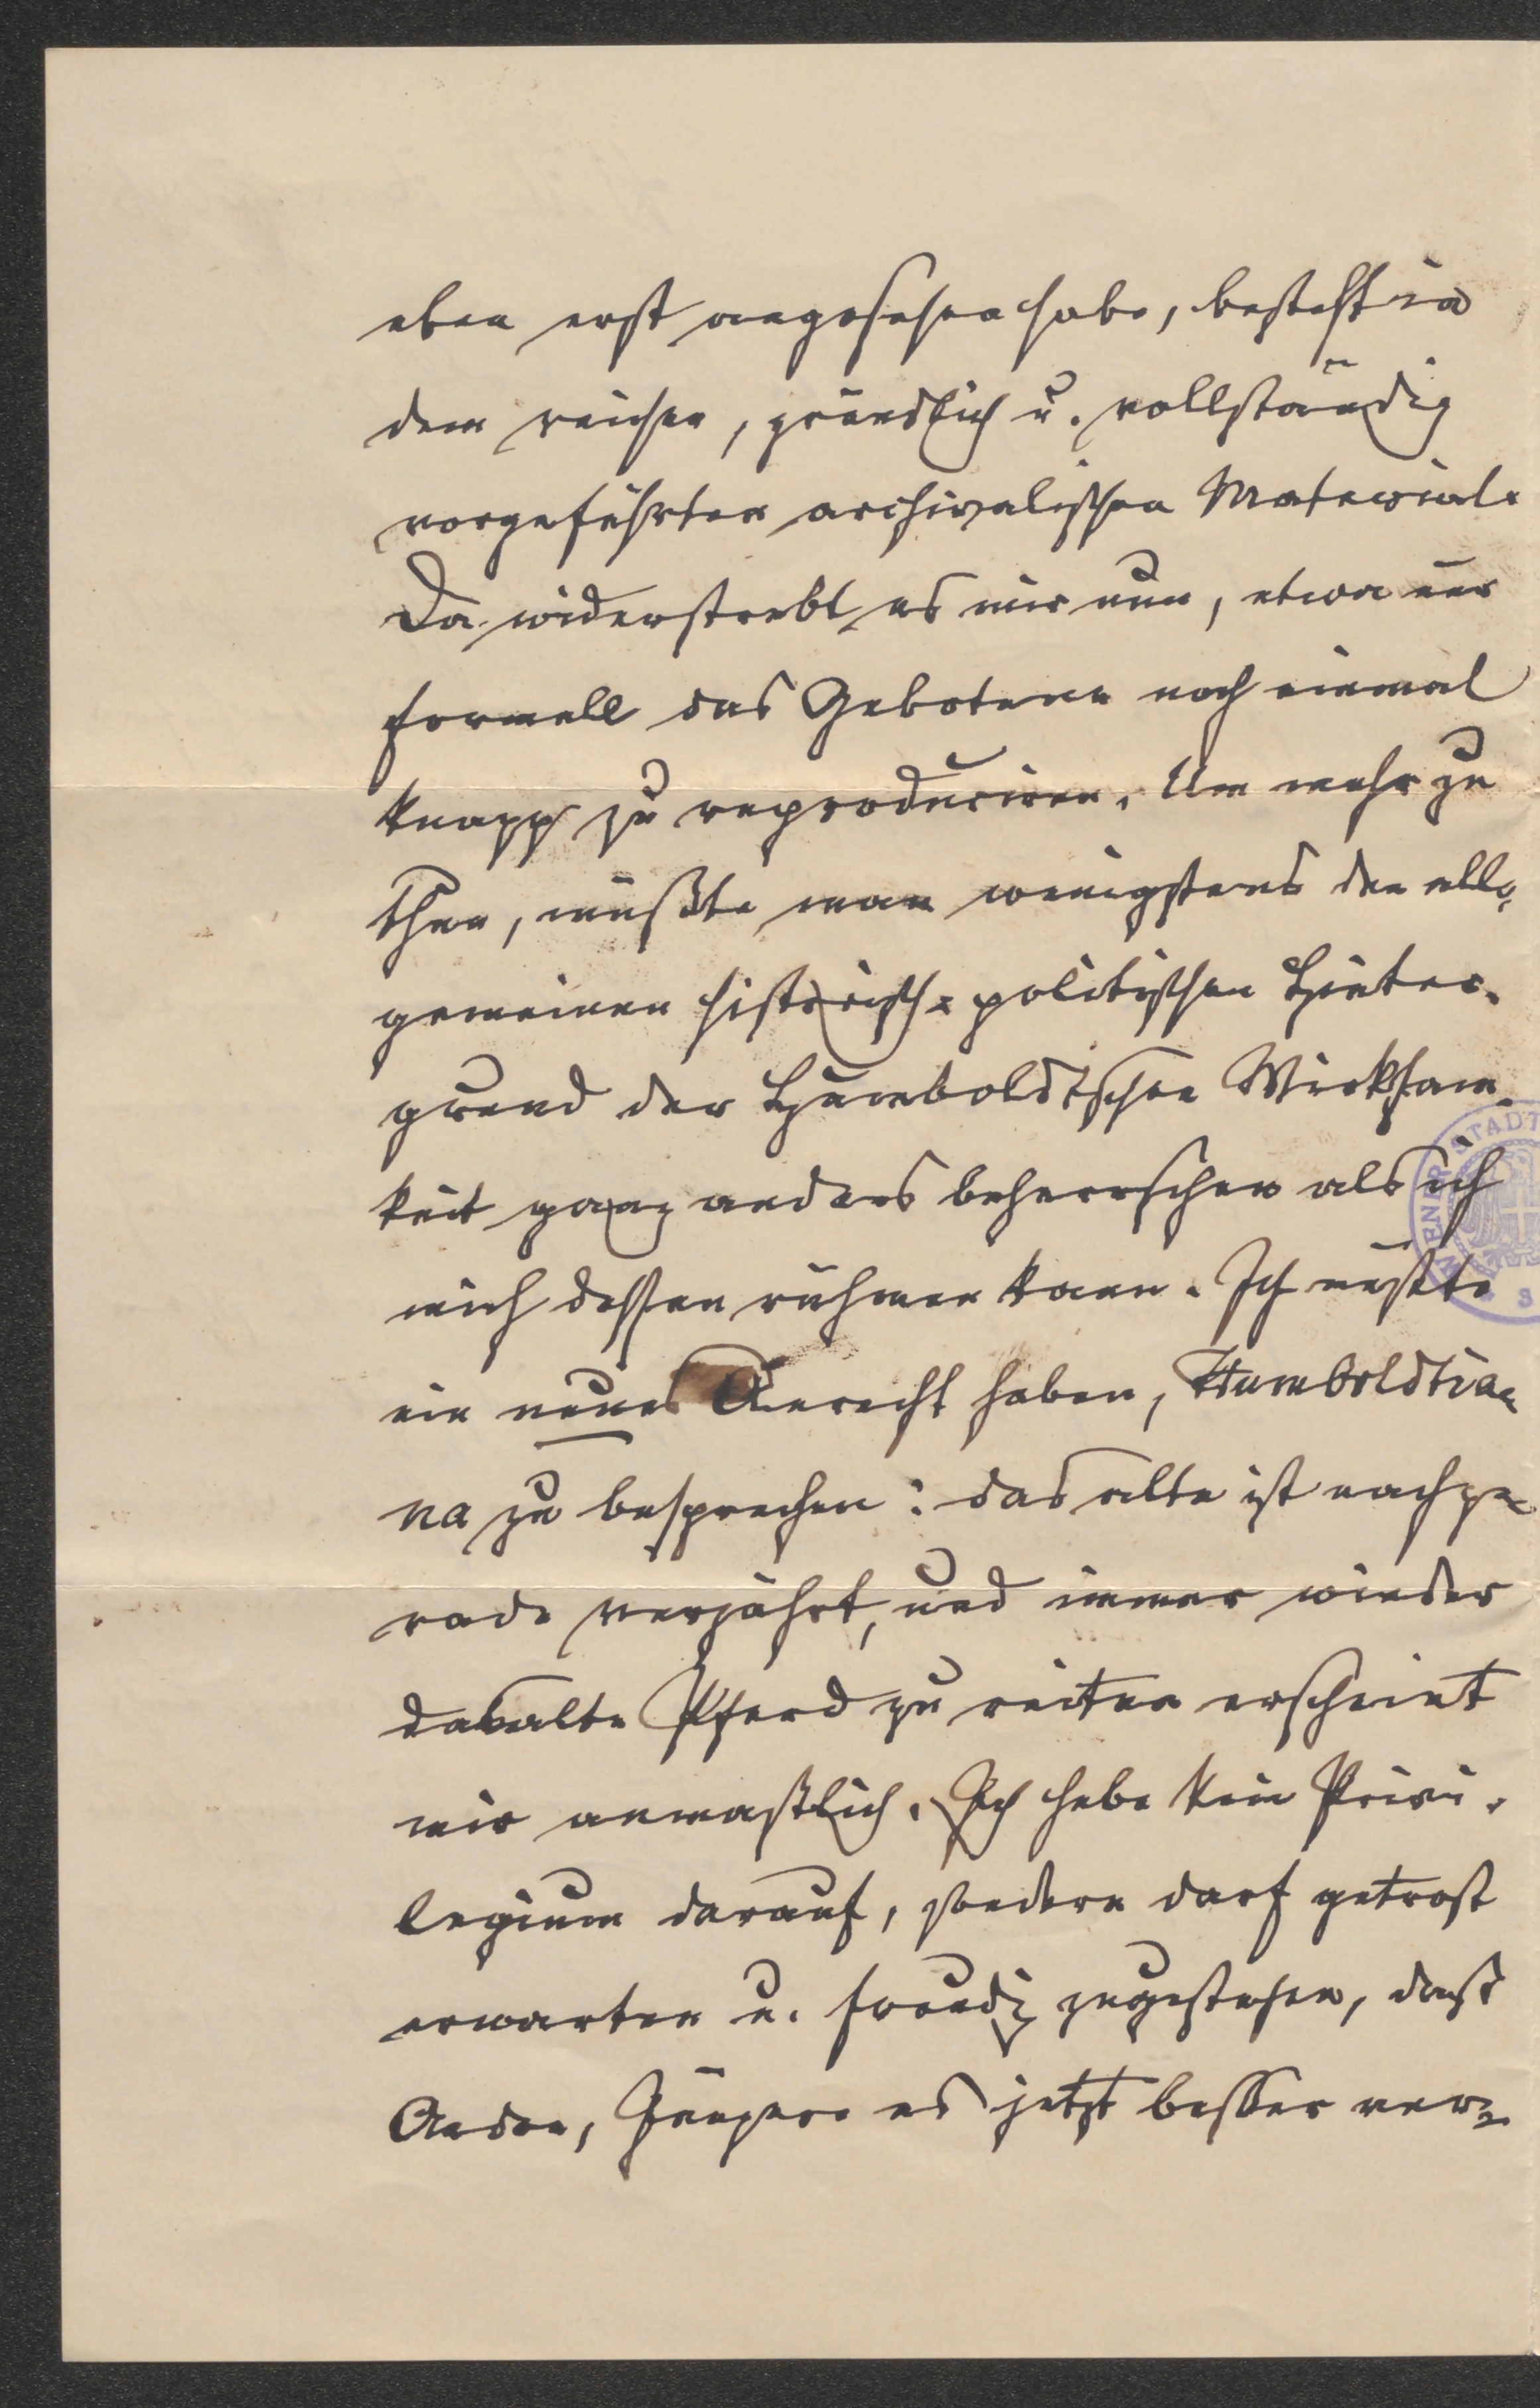 eben erst angesehen habe, besteht in
dem reichen, gründlich u. vollständig
vorgeführten archivalischen Material.
Da widerstrebt es mir nun, etwa nur
formell das Gebotene noch einmal
knapp zu reproduciren. Um mehr zu
thun, müßte man wenigstens den all-
gemeinen historisch-politischen Hinter-
grund der Humboldtschen Wirksam-
keit ganz anders beherrschen als ich
mich dessen rühmen kann. Ich müßte
ein neues Anrecht haben, Humboldtia-
na zu besprechen: das alte ist nachge-
rade verjährt, und immer wieder
das alte Pferd zu reiten erscheint
mir anmaßlich. Ich habe kein Privi-
legium darauf, sondern darf getrost
erwarten u. freudig zugestehen, daß
Andre, Jüngere es jetzt besser ver-
WIENER STADT